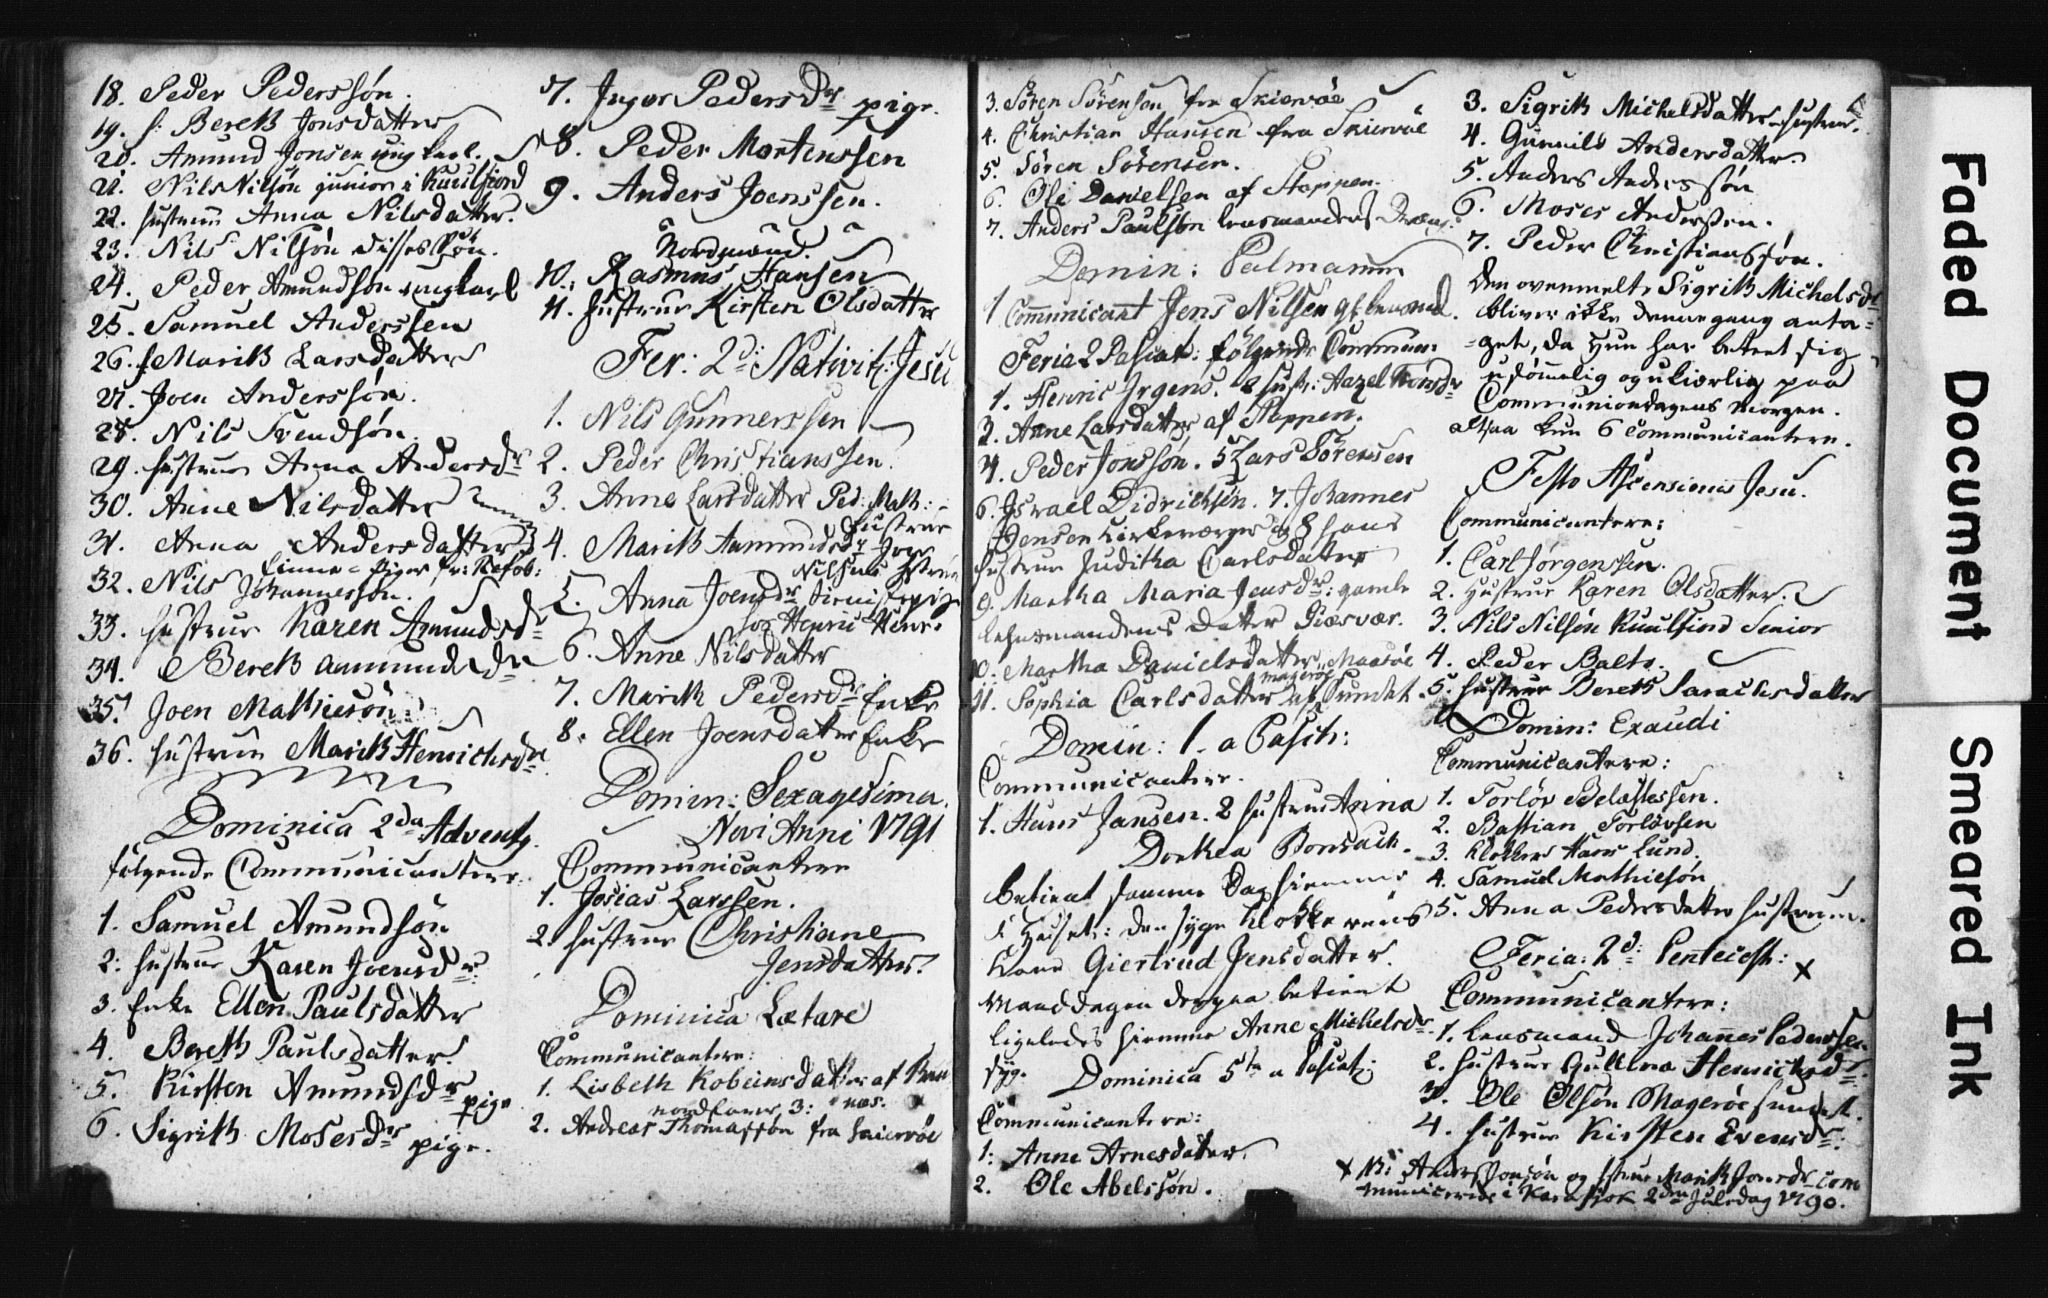 18. Peder Pederssøn.
19. h: Bereth Jonsdatter
20. Amund Jonsen ung karl.
21. Nils Nilsøn junior i Kuulfiord
22. hustrue Anna Nilsdatter.
23. Nils Nilsøn
24. Peder Amundsøn ungkarl
25. Samuel Anderssen
26. Marith Larsdatter
27. Joen Anderssøn.
28. Nils Svendsøn.
29. hustrue Anna Andersdr
30. Anne Nilsdatter
31. Anna Andersdatter
32. Nils Johannessøn.
33. hustrue Karen Amundsdr
34. Bereth Aamundsdr
35. Joen Mathiesøn
36. hustrue Marith Henrichsdr
Dominica 2da Advent
følgende Communicantere
1. Samuel Amundsøn
2. hustrue Karen Joensdr
3. Enke Ellen Paulsdatter
4. Bereth Paulsdatter
5. Kirsten Amundsdr pige
6. Sigrith Mosesdr pige.
7. Inger Pedersdr pige.
8. Peder Mortenssen
9. Anders Joenssen.
Nordmænd.
10. Rasmus Hansen
11. hustrue Kirsten Olsdatter
Fer: 2d: Nativit: Jesu
1. Nils Gunnerssen
2. Peder Christianssen.
3. Anne Larsdatter Ped: Math: hustrue
4. Marith Aamundsdr Joen
Nilsens
5. Anna Joensdr tienistepige
hos Henric Henr:
6. Anne Nilsdatter
7. Marith Pedersdr Enke
8. Ellen Joensdatter Enke
Domin: Sexagesima.
Novi Anni 1791
Communicantere
1. Josias Larssen.
2. hustrue Christiane
Jensdatter.
Dominica Lætare
Communicantere:
1. Lisbeth Kobeinsdatter af
nordfarer 3:
2. Andreas Thomassøn fra
3. Sören Sörensøn fra Skiervöe
4. Christian Hansen fra Skiervöe
5. Sören Sörensen.
6. Ole Danielsen af Stappen.
7. Anders Paulsøn lensmandens
Domin: Palmarum
1 Communicant Jens Nilsen
Feria 2 Pascat: følgende Commun:
1. Henric Irgens. 2 hust:
3. Anne Larsdatter af Stappen.
4. Peder Jonssøn. 5 Lars Sörensen
6. Israel Didrichsøn. 7. Johannes
Jensen kirkeværger og 8 hans
hustrue Juditha Carlsdatter
9. Martha Maria Jensdr: gamle
lehnsmandens datter Giæsvær.
10. Martha Danielsdatter Maasöe
11. Sophia Carlsdatter af
magerøe sundet.
Domin: 1. a Pasch:
Communicantere.
1. Hans Jansen. 2 hustrue Anna
Dorthea Bonsach.
betient samme Dag hiemme
i Huset: den syge Klokkerens
Kone Giertrud Jensdatter.
Manddagen derpaa betient
ligeledes hiemme Anne Michelsdr
syg.
Dominica 5ta a Pascat:
Communicantere:
1. Anne Arnesdatter.
2. Ole Abelssøn.
3. Sigrith Michelsdatter hustrue.
4. Gunnild Andersdatter
5. Anders Anderssøn
6. Moses Andersen.
7. Peder Christianssøn.
Den ovenmelte Sigrith Michelsdr
bliver ikke denne gang anta-
get, da hun har beteet sig
usømmelig og ukierlig paa
Communiondagens morgen.
altsaa kun 6 communicantere.
Festo Ascensionis Jesu.
Communicantere:
1. Carl Jørgenssen.
2. Hustrue Karen Olsdatter.
3. Nils Nilsøn Kuulfiord Senior
4. Peder Balto.
5. hustrue Bereth Sarachsdatter
Domin: Exaudi
Communicantere:
1. Torlöv
2. Bastian Torlövsen
3. Klokker Hans Lund.
4. Samuel Mathiesøn
5. Anna Pedersdatter hustrue.
Feria: 2d: Pentecost: x
Communicantere:
1. lensmand Johannes Pedersen
2. hustrue Gullena Henrichsdr.
3. Ole Olsøn Magerøe sundet.
4. hustrue Kirsten Evensdr.
x NB: Anders Jonsøn og hstrue Marith Joensdr com
municerede i Karasjok 2den Juledag 1790.
Faded Document
Smeared Ink